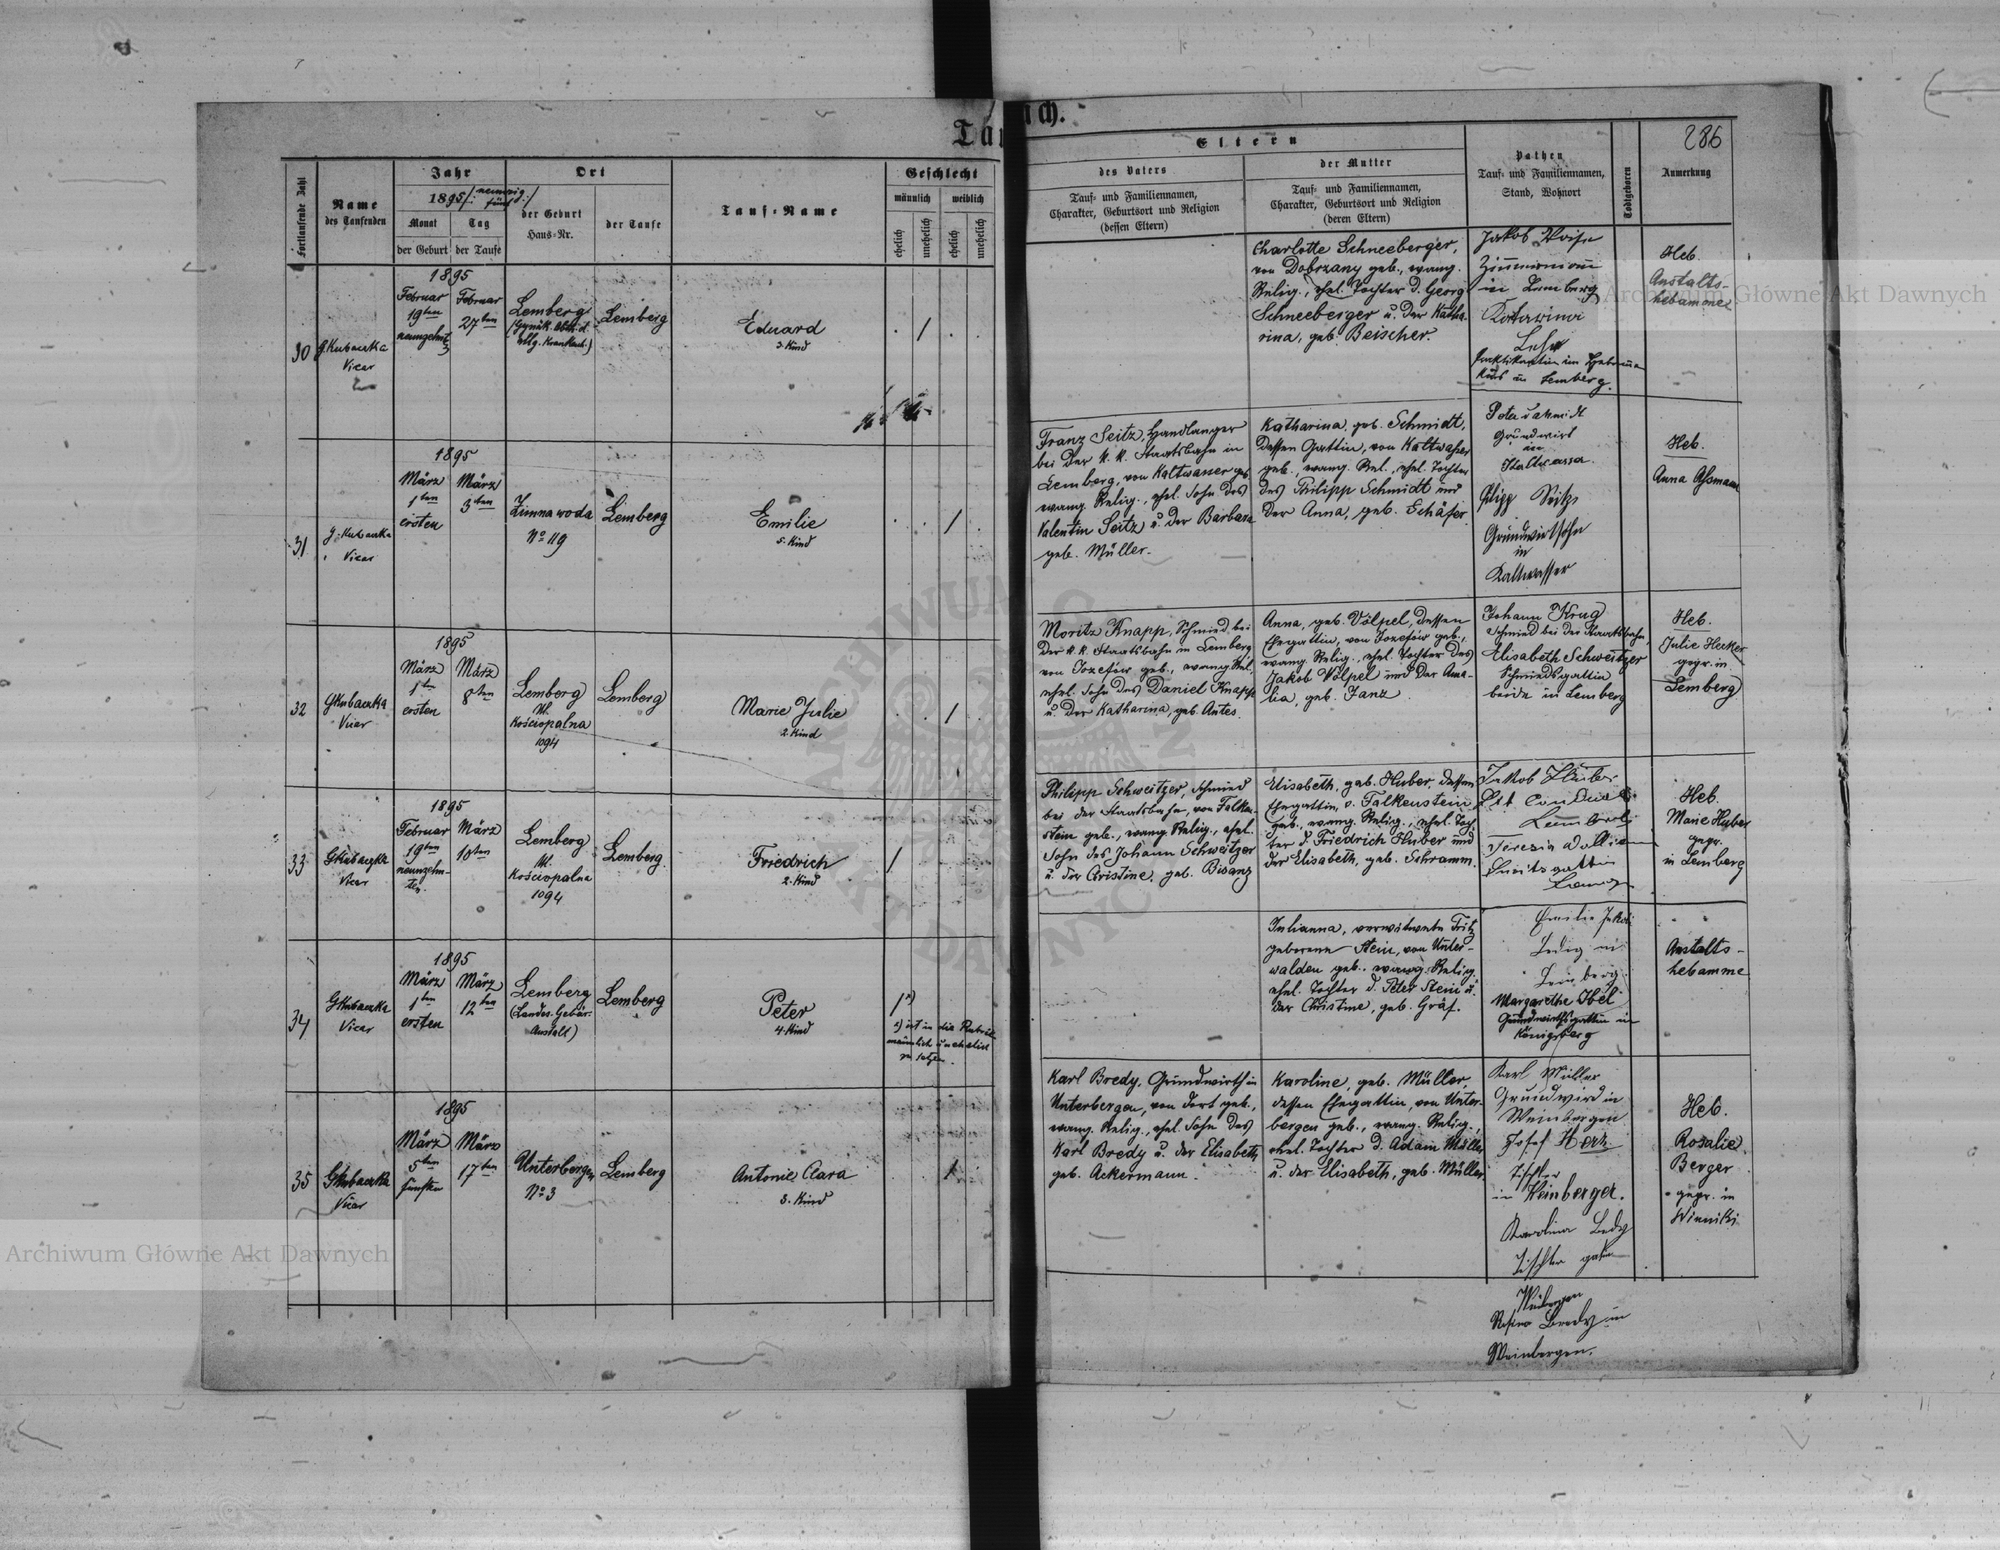 ch.
286
Eltern
Geschlecht
Jahr
Ort
1895
des Vaters
der Mutter
Pathen
Tauf- und Familiennamen,
Stand, Wohnort
Todtgeboren
Anmerkung
Fortlaufende Zahl
Name
des Taufenden
Monat
Tag
der Geburt
der Taufe
der Geburt
Haus-Nr.
der Taufe
Tauf-Name
männlich
weiblich
ehelich
unehelich
ehelich
unehelich
Tauf- und Familiennamen,
Charakter, Geburtsort und Religion
(dessen Eltern)
Tauf- und Familiennamen,
Charakter, Geburtsort und Religion
(deren Eltern)
30
G. Kubaczka
Vicar
1895
Februar
19ten
Februar
27ten
Lemberg
Lemberg
Eduard
3. Kind
Charlotte Schneeberger,
von Dobrzany geb., evang.
Relig., ehel. Tochter d. Georg
Schneeberger u. der Katha-
rina, geb. Beischer.
in Lemberg
Heb.
Anstalts-
hebamme
31
G. Kubaczka
Vicar
1895
März
1ten
ersten
März
3ten
Zimnawoda
No 119
Lemberg
Emilie
5. Kind
Franz Seitz, Handlanger
bei der k. k. Staatsbahn in
Lemberg, von Kaltwasser geb.
evang. Relig., ehel. Sohn des
Valentin Seitz u. der Barbara
geb. Müller.
Katharina, geb. Schmidt,
dessen Gattin, von Kaltwasser
geb., evang. Rel., ehel. Tochter
des Philipp Schmidt und
der Anna, geb. Schäfer.
Grundwirtssohn
in
Kaltwasser
Heb.
Anna Assmann
32
G Kubaczka
Vicar
1895
März
1ten
ersten
März
8ten
Lemberg
Ul.
Kościopalna
1094
Lemberg
Marie Julie
2. Kind
Moritz Knapp, Schmied bei
der k. k. Staatsbahn in Lemberg
von Józefów geb., evang. Rel.,
ehel. Sohn des Daniel Knapp
u. der Katharina, geb. Antes.
Anna, geb. Völpel, dessen
Ehegattin, von Józefów geb.,
evang. Relig., ehel. Tochter des
Jakob Völpel und der Ama-
lia, geb. Janz.
Johann Krug
Schmied bei der Staatsbahn,
Elisabeth Schweitzer
Schmiedsgattin
beide in Lemberg
Heb.
Julie Hecker
gepr. in
Lemberg
33
G Kubaczka
Vicar
1895
Februar
19ten
neunzehn-
ten
März
10ten
Lemberg
Ul.
Kościopalna
1094
Lemberg.
Friedrich
2. Kind
Philipp Schweitzer, Schmied
bei der Staatsbahn, von Falken-
stein geb., evang. Relig., ehel.
Sohn des Johann Schweitzer
u. der Christine, geb. Bisanz
Elisabeth, geb. Huber, dessen
Ehegattin, v. Falkenstein
geb., evang. Relig., ehel. Toch-
ter d. Friedrich Huber und
der Elisabeth, geb. Schramm.
Heb.
Marie Huber
gepr.
in Lemberg
34
G Kubaczka
Vicar
1895
März
1ten
ersten
März
12ten
Lemberg
(Landes. Gebär-
Anstalt)
Lemberg
Peter
4. Kind
x) ist in die Rubrik
männlich unehelich
zu setzen.
Julianna, verwitwete Fritz
geborene Stein, von Unter-
walden geb., evang. Relig.
ehel. Tochter d. Peter Stein u.
der Christine, geb. Gräf.
Margaretha Ibel
Grundwirthsgattin in
Königsberg
Anstalts-
hebamme
35
G Kubaczka
Vicar
1895
März
5ten
fünften
März
17ten
Unterbergen
No 3
Lemberg
Antonie Clara
3. Kind
Karl Bredy, Grundwirth in
Unterbergen, von dort geb.,
evang. Relig., ehel. Sohn des
Karl Bredy u. der Elisabeth,
geb. Ackermann.
Karoline, geb. Müller,
dessen Ehegattin, von Unter-
bergen geb., evang. Relig.,
ehel. Tochter d. Adam Müller
u. der Elisabeth, geb. Müller.
Karl Müller
Grundwird in
Weinbergen
Josef Herz
Tischler
in Weinbergen.
Karolina
Tischler
Weinbergen
Bredy in
Weinbergen.
Heb.
Rosalie
Berger
gepr. in
Winniki
Archiwum Główne Akt Dawnych
Archiwum Główne Akt Dawnych